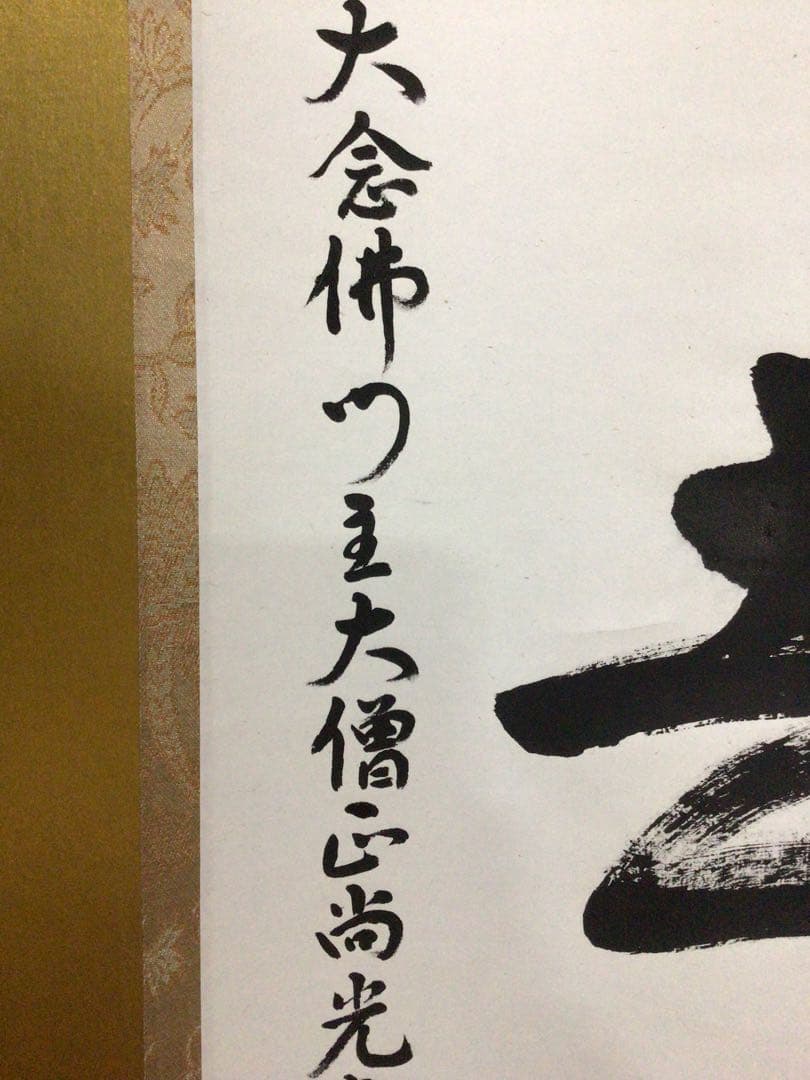 大念佛門主大僧正尚光